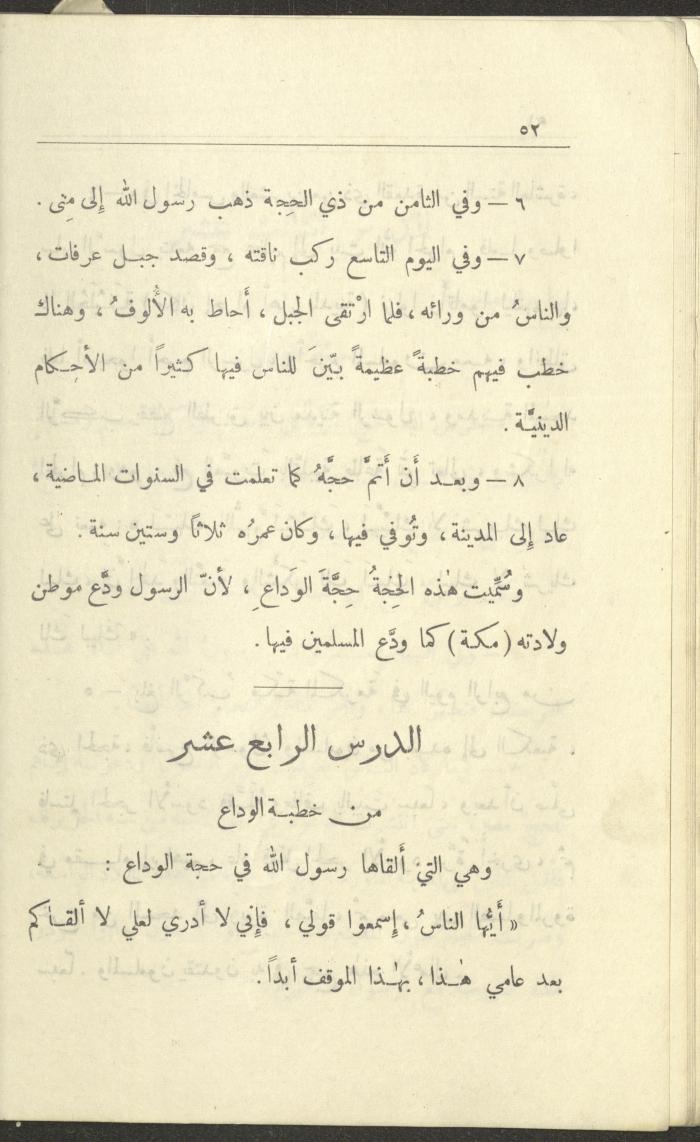 ٥٢
٦ — وفي الثامن من ذي الحِجة ذهب رسول الله إِلى مِنى .
٧ — وفي اليوم التاسع ركب ناقته ، وقصد جبـل عرفات ،
والناسُ من ورائه ، فلما ارْتقى الجبل ، أَحاط به الأُلوفُ ، وهناك
خطب فيهم خطبةً عظيمةً بيّنَ للناس فيها كثيراً من الأحكام
الدينيَّة .
٨ — وبعـد أَن أَتمَّ حجَّهُ كما تعلمت في السنوات الماضية ،
عاد إِلى المدينة ، وتُوفي فيها ، وكان عمرُه ثلاثاً وستين سنة .
وسُمِّيت هٰذه الحِجةُ حِجَّةَ الوَداعِ ، لأنّ الرسول ودَّع موطن
ولادته ( مكة ) كما ودَّع المسلمين فيها .
الدرس الرابع عشر
من خطبة الوداع
وهي التيْ أَلقاها رسول الله في حجة الوداع :
« أَيُّها الناسُ ، إِسمعوا قولي ، فإِني لا أدري لعلي لا ألقـاكم
بعد عامي هٰـذا ، بهٰـذا الموقف أبداً .